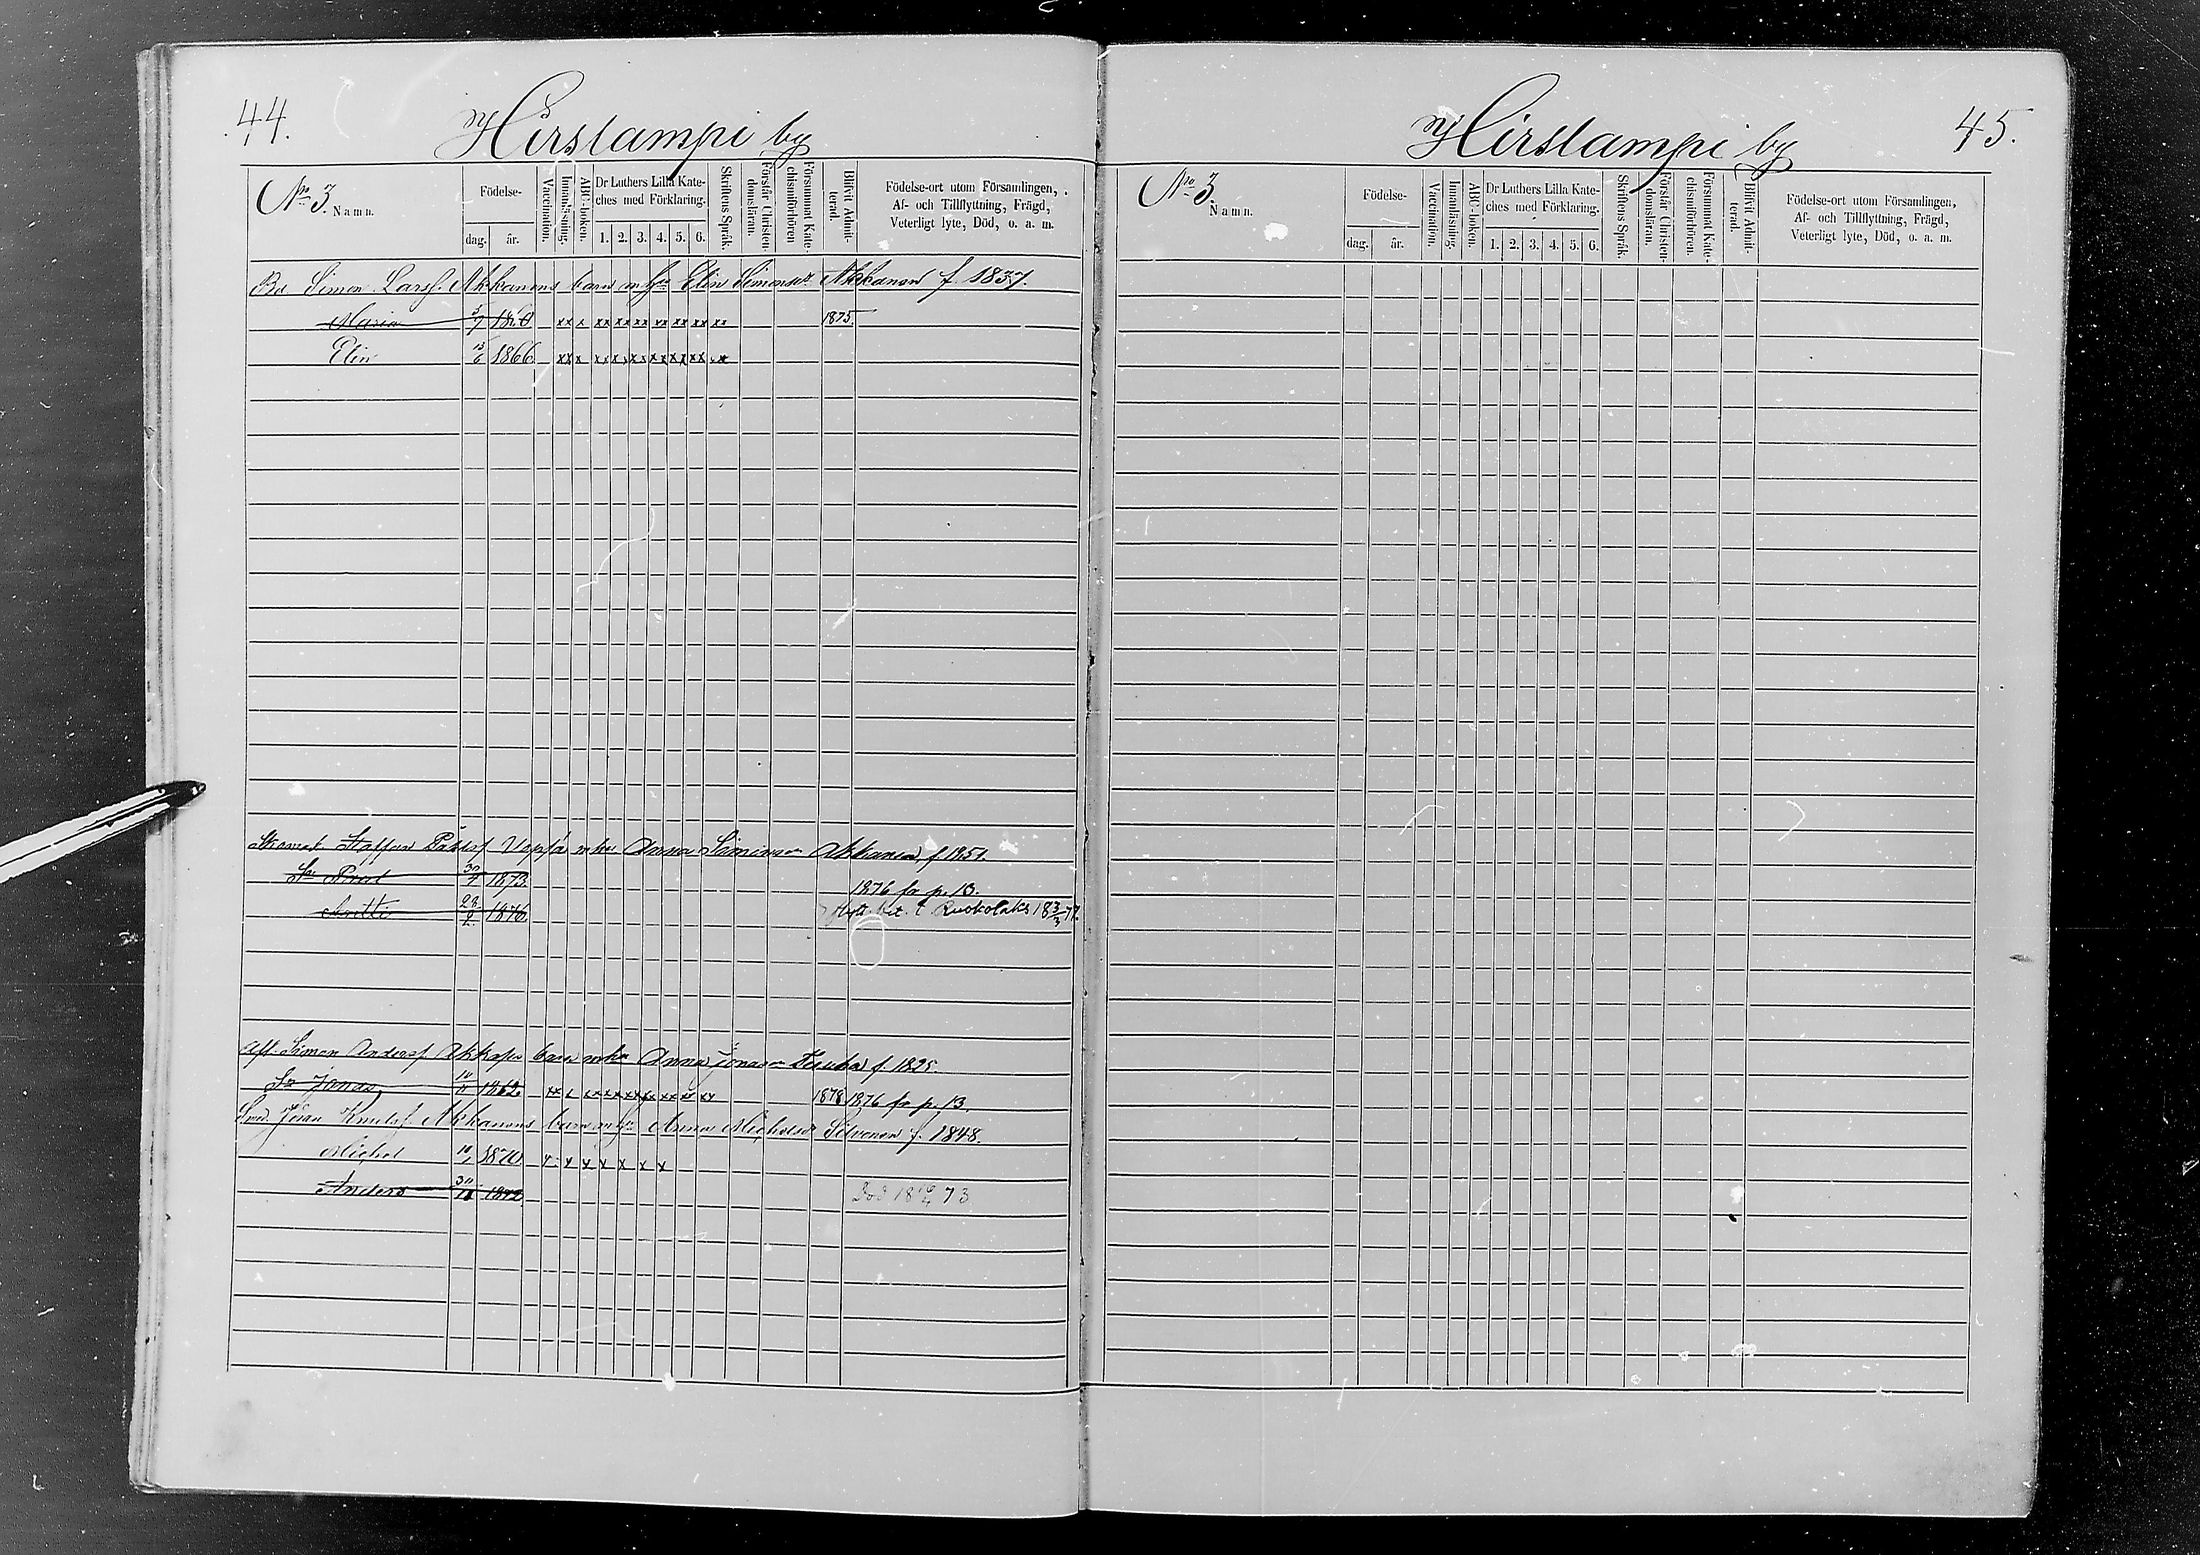 44.
Hirslampi by
No 3. Namn.
Födelse-
dag. år.
Vaccination.
Innanläsning.
ABC-boken.
Dr Luthers Lilla Kate-
ches med Förklaring.
1. 2. 3. 4. 5. 6.
Skriftens Språk.
Förstår Christen-
domsläran.
Försummat Kate-
chismiförhören
Blifvit Admit-
terad.
Födelse-ort utom Församlingen,
Af- och Tillflyttning, Frägd,
Veterligt lyte, Död, o. a. m.
Bd Simon Larsf. Akkanens barn m hu Elin Simonsdr Akkanen f. 1837.
Maria 5/7 1860 xx x xx xx xx xx xx xx xx 1875.
Elin 13/6 1866 xx x xx xx xx xx xx xx xx
Staffan Pålsf mhu Anna Akkanen f. 1851.
Sn 30/7 1873. 1876 fr p. 13.
Antti 28/2 1876 flytt. bet. t. Ruokolaks 18 3/3 77.
Afl. Simon Andersf barn mhu Anna Jonasdr f. 1825.
Sn Jonas 1862 1878 1876 fr p. 13.
Smed Johan Knutsf. Akkanens barn m hu Anna Michelsdr Silvenen f. 1848.
Michel 10/1 1870 x x x x x x x
Anders 30/11 1872 Död 18 73
Hirslampi by
45.
No 3.
Namn.
Födelse-
dag. år.
Vaccination.
Innanläsning.
ABC-boken.
Dr Luthers Lilla Kate-
ches med Förklaring.
1. 2. 3. 4. 5. 6.
Skriftens Språk.
Förstår Christen-
domsläran.
Försummat Kate-
chismiförhören.
Blifvit Admit-
terad.
Födelse-ort utom Församlingen,
Af- och Tillflyttning, Frägd,
Veterligt lyte, Död, o. a. m.